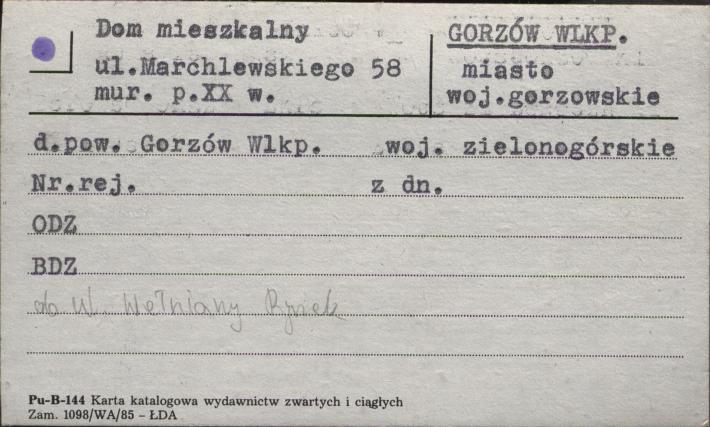 Dom mieszkalny
GORZÓW WLKP.
ul.Marchlewskiego 58
miasto
mur. p.XX w.
woj.gorzowskie
d.pow. Gorzów Wlkp. woj. zielonogórskie
Nr.rej. z dn.
ODZ
BDZ
ob ul. Wełniany Rynek
Pu-B-144 Karta katalogowa wydawnictw zwartych i ciągłych
Zam. 1098/WA/85 – ŁDA